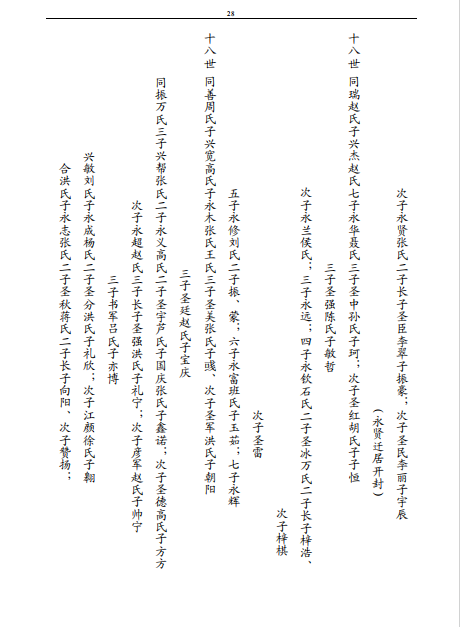 28
次子永贤张氏二长子圣臣李翠子振豪；次子圣民李丽子宇辰
（永贤迁居开封）
十八世 同瑞赵氏子兴杰赵氏七子永华聂氏三子圣中孙氏子珂；次子圣红胡氏子子恒
三子圣强陈氏子敏哲
次子永兰侯氏；三子永远；四子永钦石氏二子圣冰万氏二长子梓浩、
次子梓棋
次子圣雷
五子永修刘氏二子振、蒙；六子永富班氏子玉茹；七子永辉
十八世 同善周氏子兴宽高氏子永木张氏王氏三子圣美张氏子彧、次子圣军洪氏子朝阳
三子圣廷赵氏子宝庆
同振万氏三子兴帮张氏二子永义高氏二子圣宇芦氏子国庆张氏子鑫诺；次子圣德高氏子方方
次子永超赵氏三长子圣强洪氏子礼宁；次子彦军赵氏子帅宁
三子书军吕氏子亦博
兴敏刘氏子永成杨氏二子圣分洪氏子礼欣；次子江颜徐氏子翱
合洪氏子永志张氏二子圣秋蒋氏二长子向阳、次子赞扬；